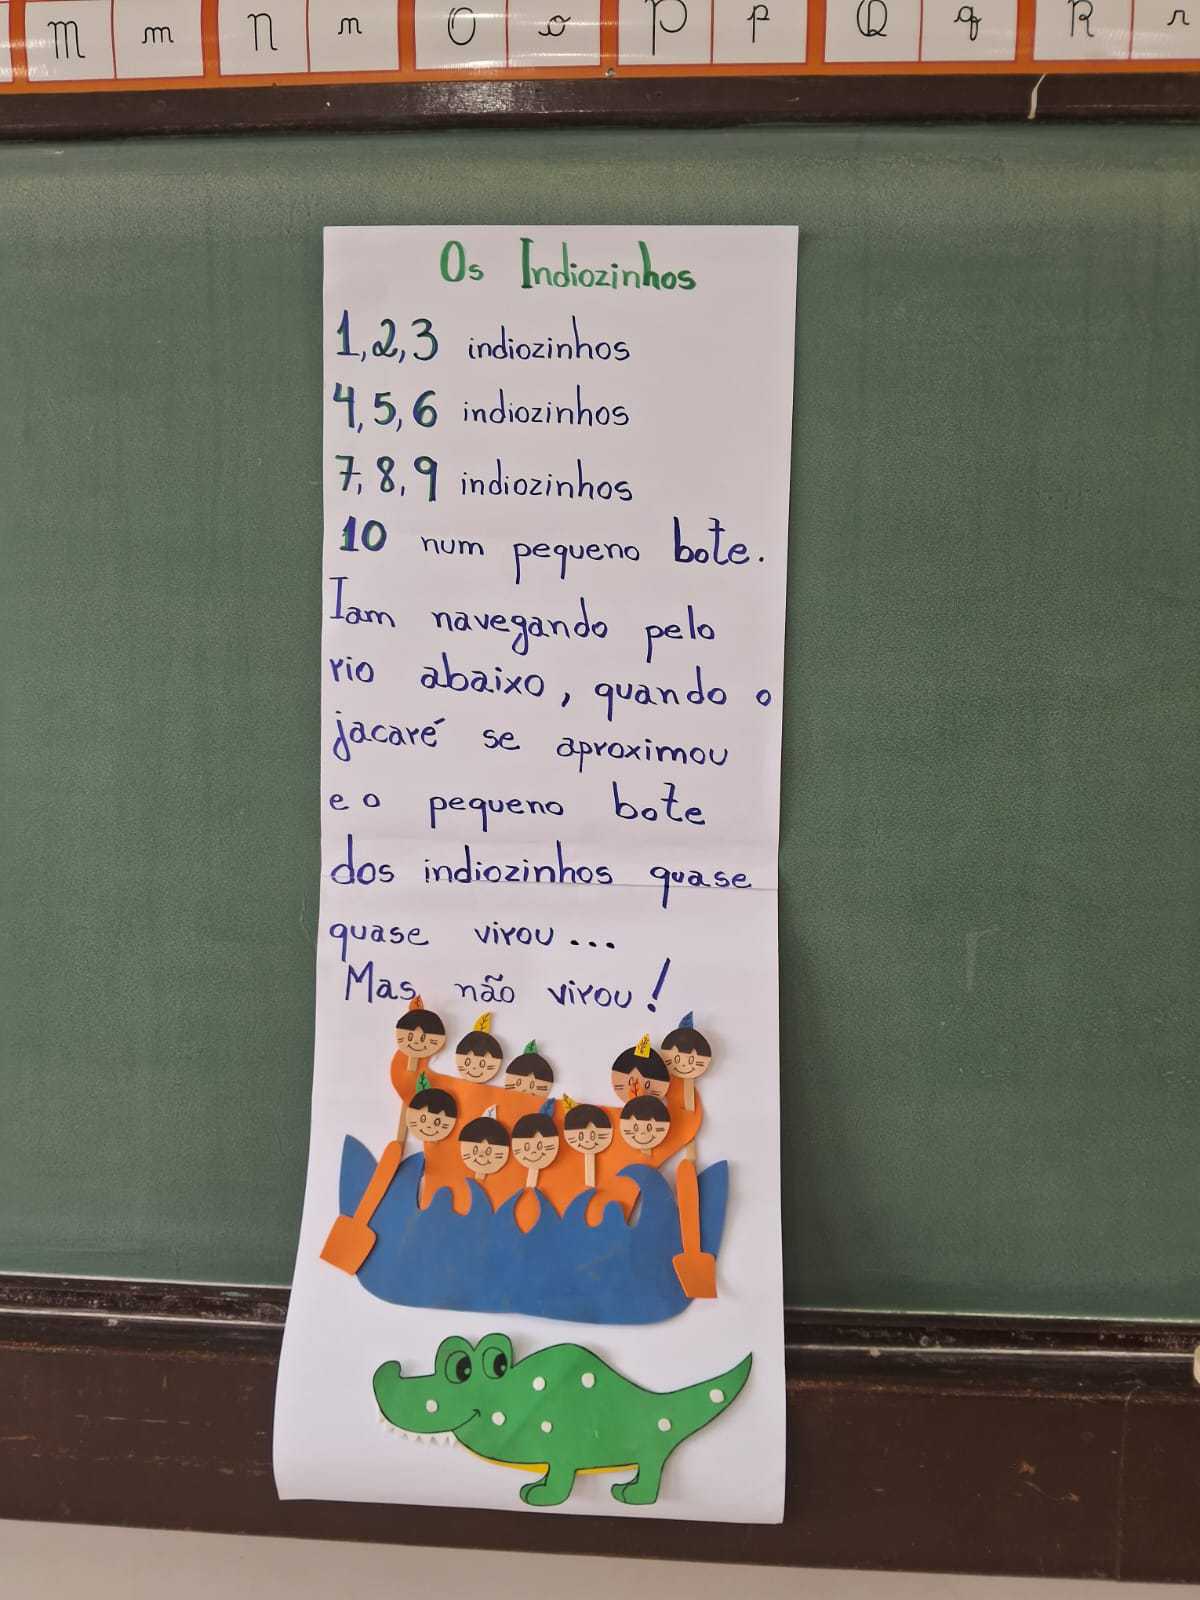 M m N n O o P p Q q R r
Os Indiozinhos
1, 2, 3 indiozinhos
4, 5, 6 indiozinhos
7, 8, 9 indiozinhos
10 num pequeno bote.
Iam navegando pelo
rio abaixo, quando o
jacaré se aproximou
e o pequeno bote
dos indiozinhos quase
quase virou...
Mas não virou!